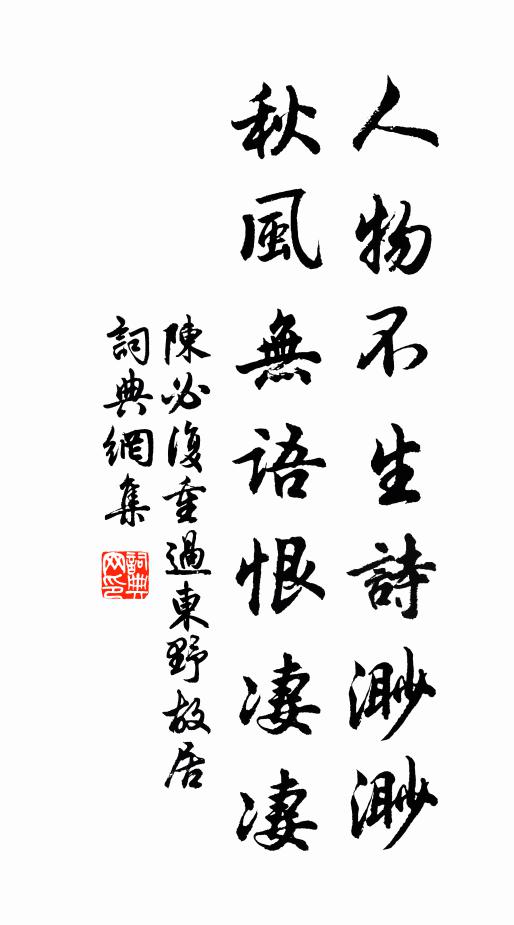 人物不生詩渺渺
秋風無語恨淒淒
陳必復重過東野故居
詞典網集
詞典
网印